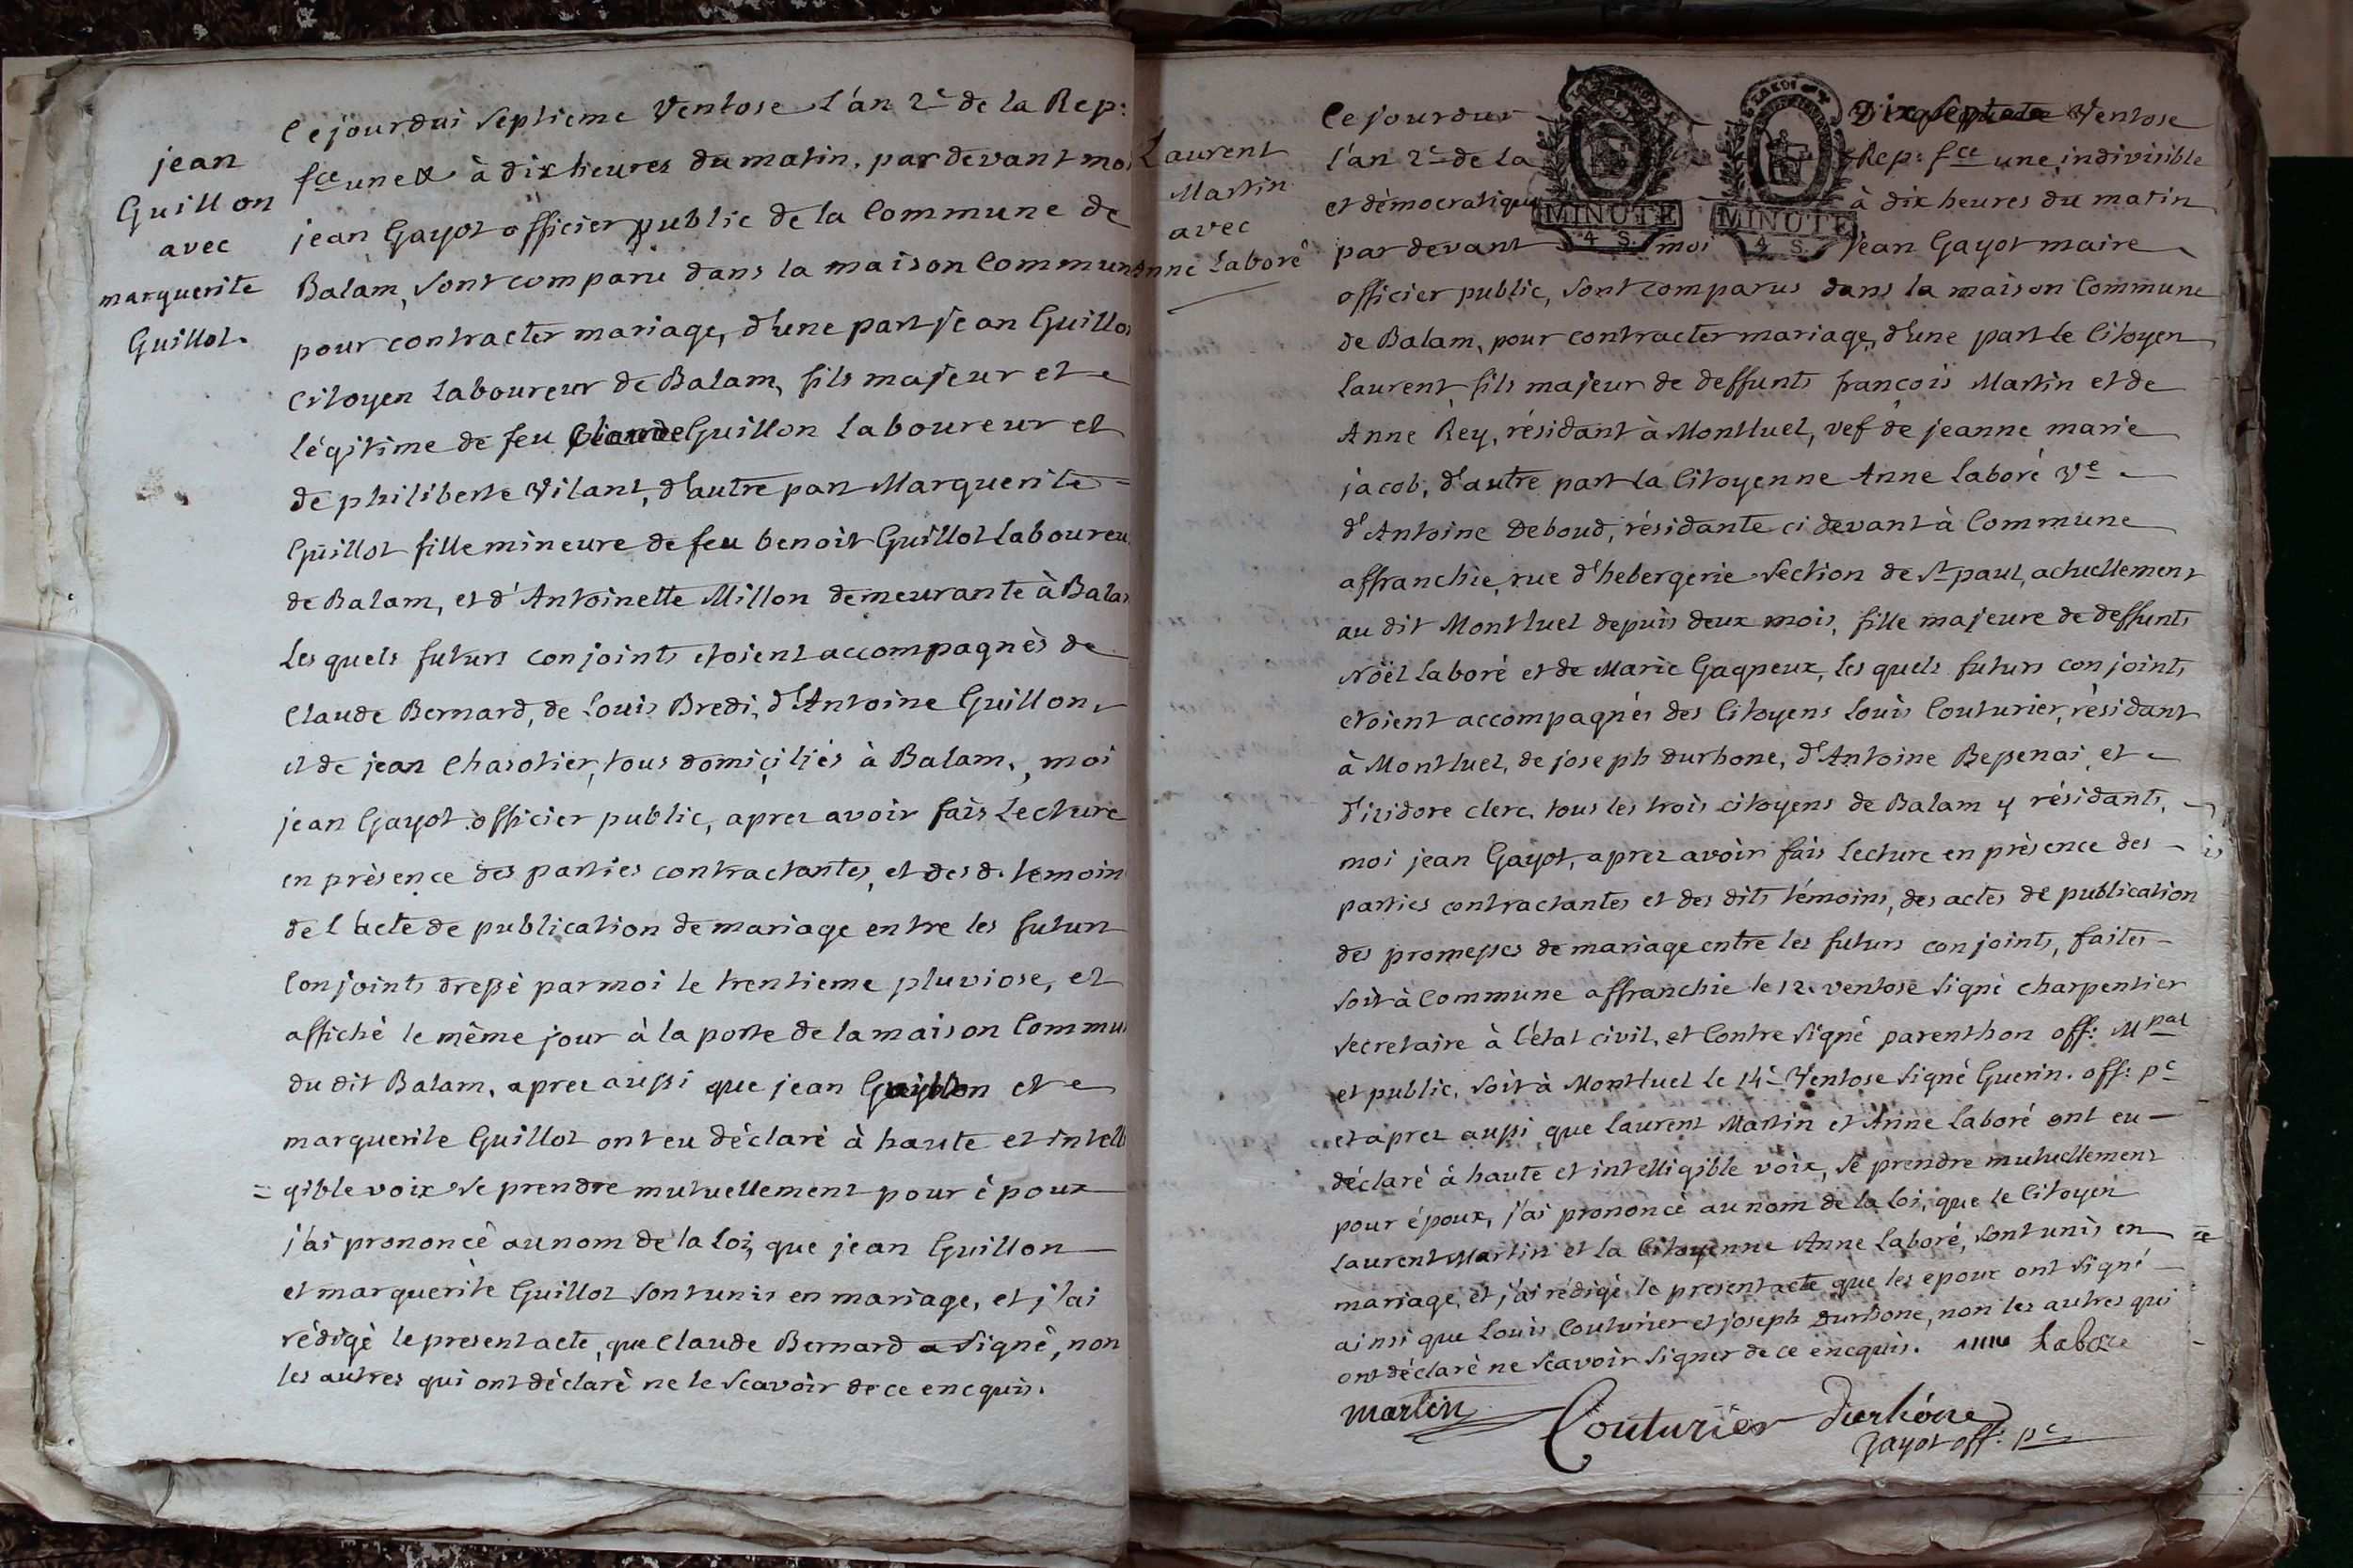 jean
Guillon
avec
marguerite
Guillot.
Ce jourdui Septieme Ventose L'an 2e de la Rep:
fce une & à dix heures du matin, par devant moi
jean Gayot officier public de la Commune de
Balam, sont comparu dans la maison Commun
pour contracter mariage, d'une part jean Guillon
Citoyen Laboureur de Balam, fils majeur et
légitime de feu Claude Guillon Laboureur et
de philiberte Vilant, d'autre part Marguerite =
Guillot fille mineure de feu benoit Guillot Laboureu
de Balam, et d'Antoinette Millon demeurante à Balam
Les quels futurs conjoints etoient accompagnès de
Claude Bernard, de Louis Bredi, d'Antoine Guillon,
et de jean Chasotier, tous domiciliés à Balam, moi
jean Gayot officier public, aprez avoir fais Lecture
en prèsence des parties contractantes, et des d. temoin
de l'acte de publication de mariage entre les futurs
Conjoints dressé par moi le trentieme pluviose, et
affiché le même jour à la porte de la maison Commu
du dit Balam, aprez aussi que jean Guillon et
marguerite Guillot ont eu dèclaré à haute et intelli
= gible voix se prendre mutuellement pour époux
j'ai prononcé au nom de la Loi, que jean Guillon
et marguerite Guillot sont unis en mariage, et j'ai
rédigé le present acte, que Claude Bernard a signé, non
les autres qui ont déclaré ne le sçavoir de ce encquis.
Laurent
Martin
avec
Anne Laboré
Ce jourdui Dix Septieme Ventose
L'an 2e de La Rep: fce une, indivisible
et démocratique à dix heures du matin
MINUTE
4 S.
MINUTE
4 S.
par devant moi jean Gayot maire
officier public, sont comparus dans la maison Commune
de Balam, pour contracter mariage, d'une part le Citoyen
Laurent, fils majeur de deffunts françois Martin et de
Anne Rey, résidant à Montluel, vef de jeanne marie
jacob, d'autre part la Citoyenne Anne Laboré Ve
d'Antoine Deboud, résidante ci devant à Commune
affranchie, rue d'hebergerie section de St paul, actuellement
au dit Montluel depuis deux mois, fille majeure de deffunts
Nöël Laboré et de Marie Gagneux, les quels futurs conjoints
etoient accompagnés des Citoyens Louis Couturier, résidant
à Montluel, de joseph durhone, d'Antoine Bepenai, et
d'izidore clerc, tous les trois citoyens de Balam y résidants,
moi jean Gayot, aprez avoir fais lecture en présence des
parties contractantes et des dits témoins, des actes de publication
des promesses de mariage entre les futurs conjoints, faites
soit à Commune affranchie le 12 ventose signé charpentier
secretaire à l'état civil, et Contre signé parenthon off: Mpal
et public, soit à Montluel le 14e Ventose signé Guerin. off: pc
et aprez aussi que laurent Martin et Anne Laboré ont eu
déclaré à haute et intelligible voix, se prendre mutuellement
pour époux, j'ai prononcé au nom de la Loi, que le Citoyen
Laurent Martin et la Citoyenne Anne Laboré, sont unis en
mariage, et j'ai rédigé le present acte que les epoux ont signé
ainsi que Louis Couturier et joseph Durhone, non les autres qui
ont déclaré ne sçavoir signer de ce encquis. anne Labore
martin Couturier Durhône
Gayot off: pc